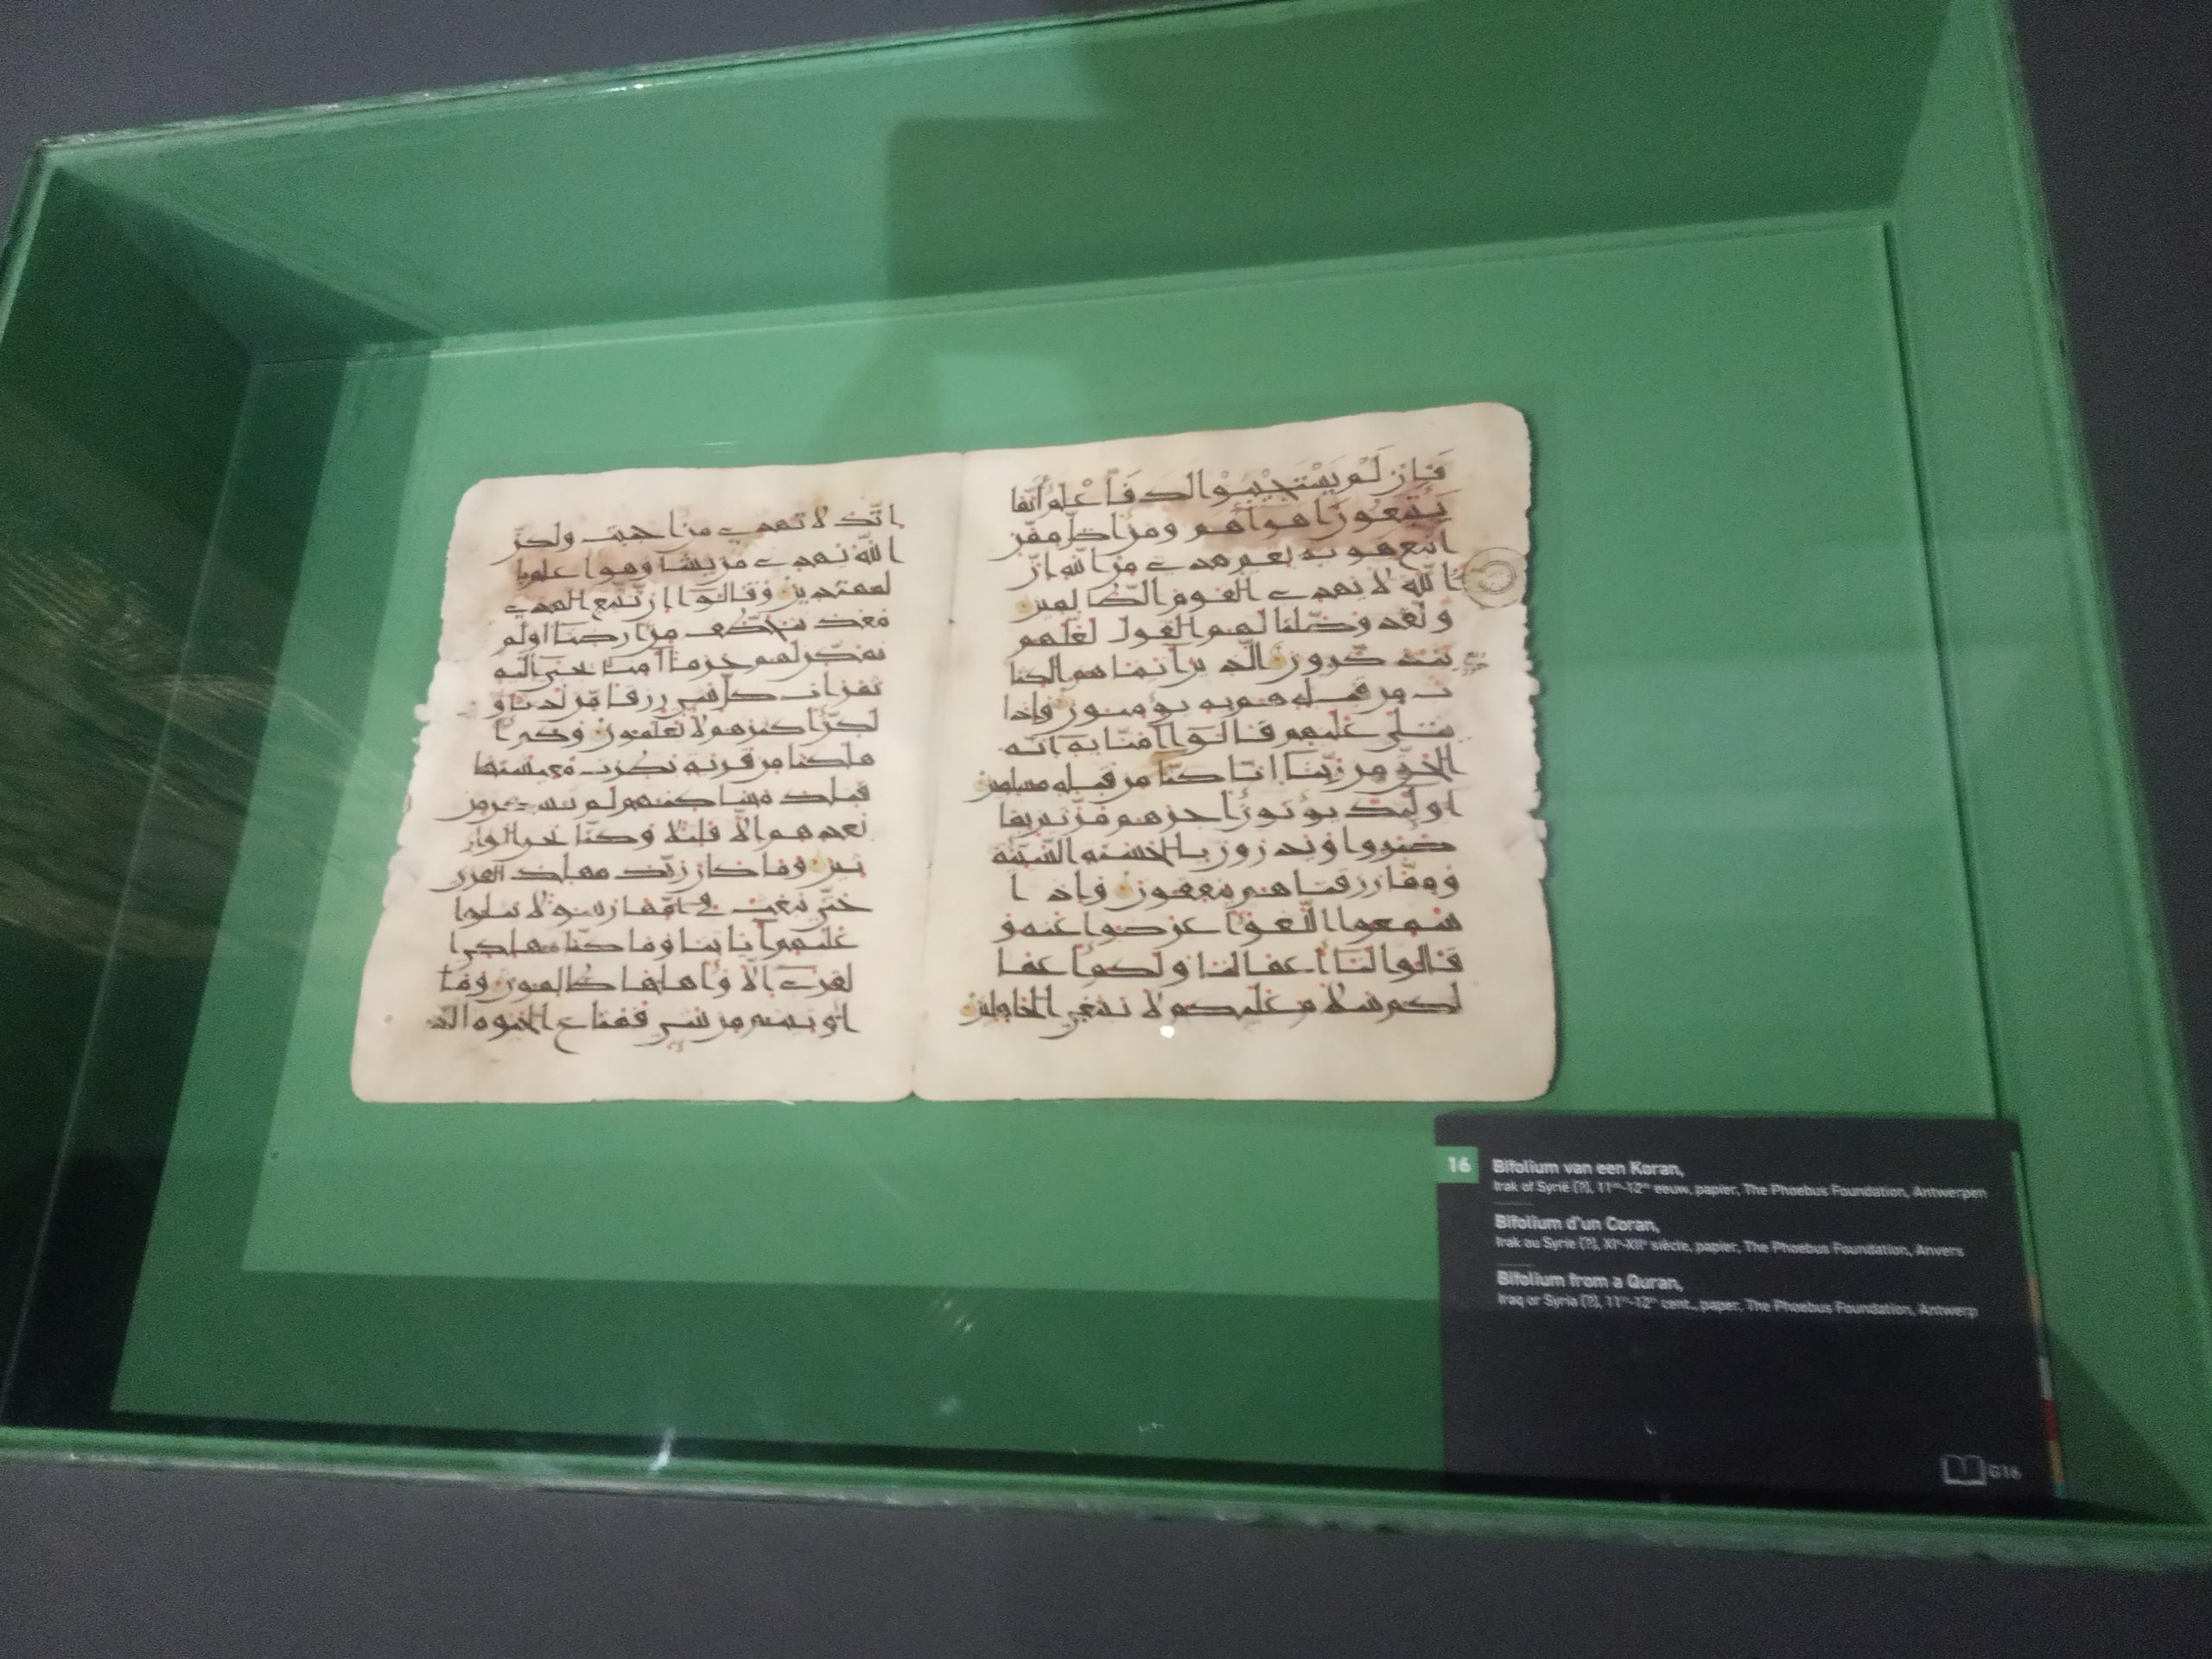 فان لم يستجيبوا لك فاعلم انما
يتبعون اهواهم ومن اضل ممن
اتبع هويه بغير هدى من الله ان
الله لا يهدي القوم الظالمين
ولقد وصلنا لهم القول لعلهم
يتذكرون الذين اتيناهم الكتا
ب من قبله هم به يؤمنون واذا
يتلى عليهم قالوا امنا به انه
الحق من ربنا انا كنا من قبله مسلمين
اوليك يؤتون اجرهم مرتين بما
صبروا ويدرون بالحسنه السيئه
ومما رزقناهم ينفقون واذ ا
سمعوا اللغو اعرضوا عنه و
قالوا لنا اعمالنا ولكم اعما
لكم سلام عليكم لا نبتغي الجاهلين
انك لا تهدي من احببت ولكن
الله يهدي من يشا وهو اعلم با
لمهتدين وقالوا ان نتبع الهدى
معك نتخطف من ارضنا اولم
نمكن لهم حرما امنا يجبى اليه
ثمرات كل شي رزقا من لدنا و
لكن اكثرهم لا يعلمون وكم ا
هلكنا من قريه بطرت معيشتها
فتلك مساكنهم لم تسكن من
بعدهم الا قليلا وكنا نحن الوار
ثين وما كان ربك مهلك القرى
حتى يبعث في امها رسولا يتلوا
عليهم اياتنا وما كنا مهلكي ا
لقرى الا واهلها ظالمون وما
اوتيتم من شي فمتاع الحيوه الد
16
Bifolium van een Koran,
Irak of Syrië (?), 11de-12de eeuw, papier, The Phoebus Foundation, Antwerpen
Bifolium d'un Coran,
Irak ou Syrie (?), XIe-XIIe siècle, papier, The Phoebus Foundation, Anvers
Bifolium from a Quran,
Iraq or Syria (?), 11th-12th cent., paper, The Phoebus Foundation, Antwerp
G16